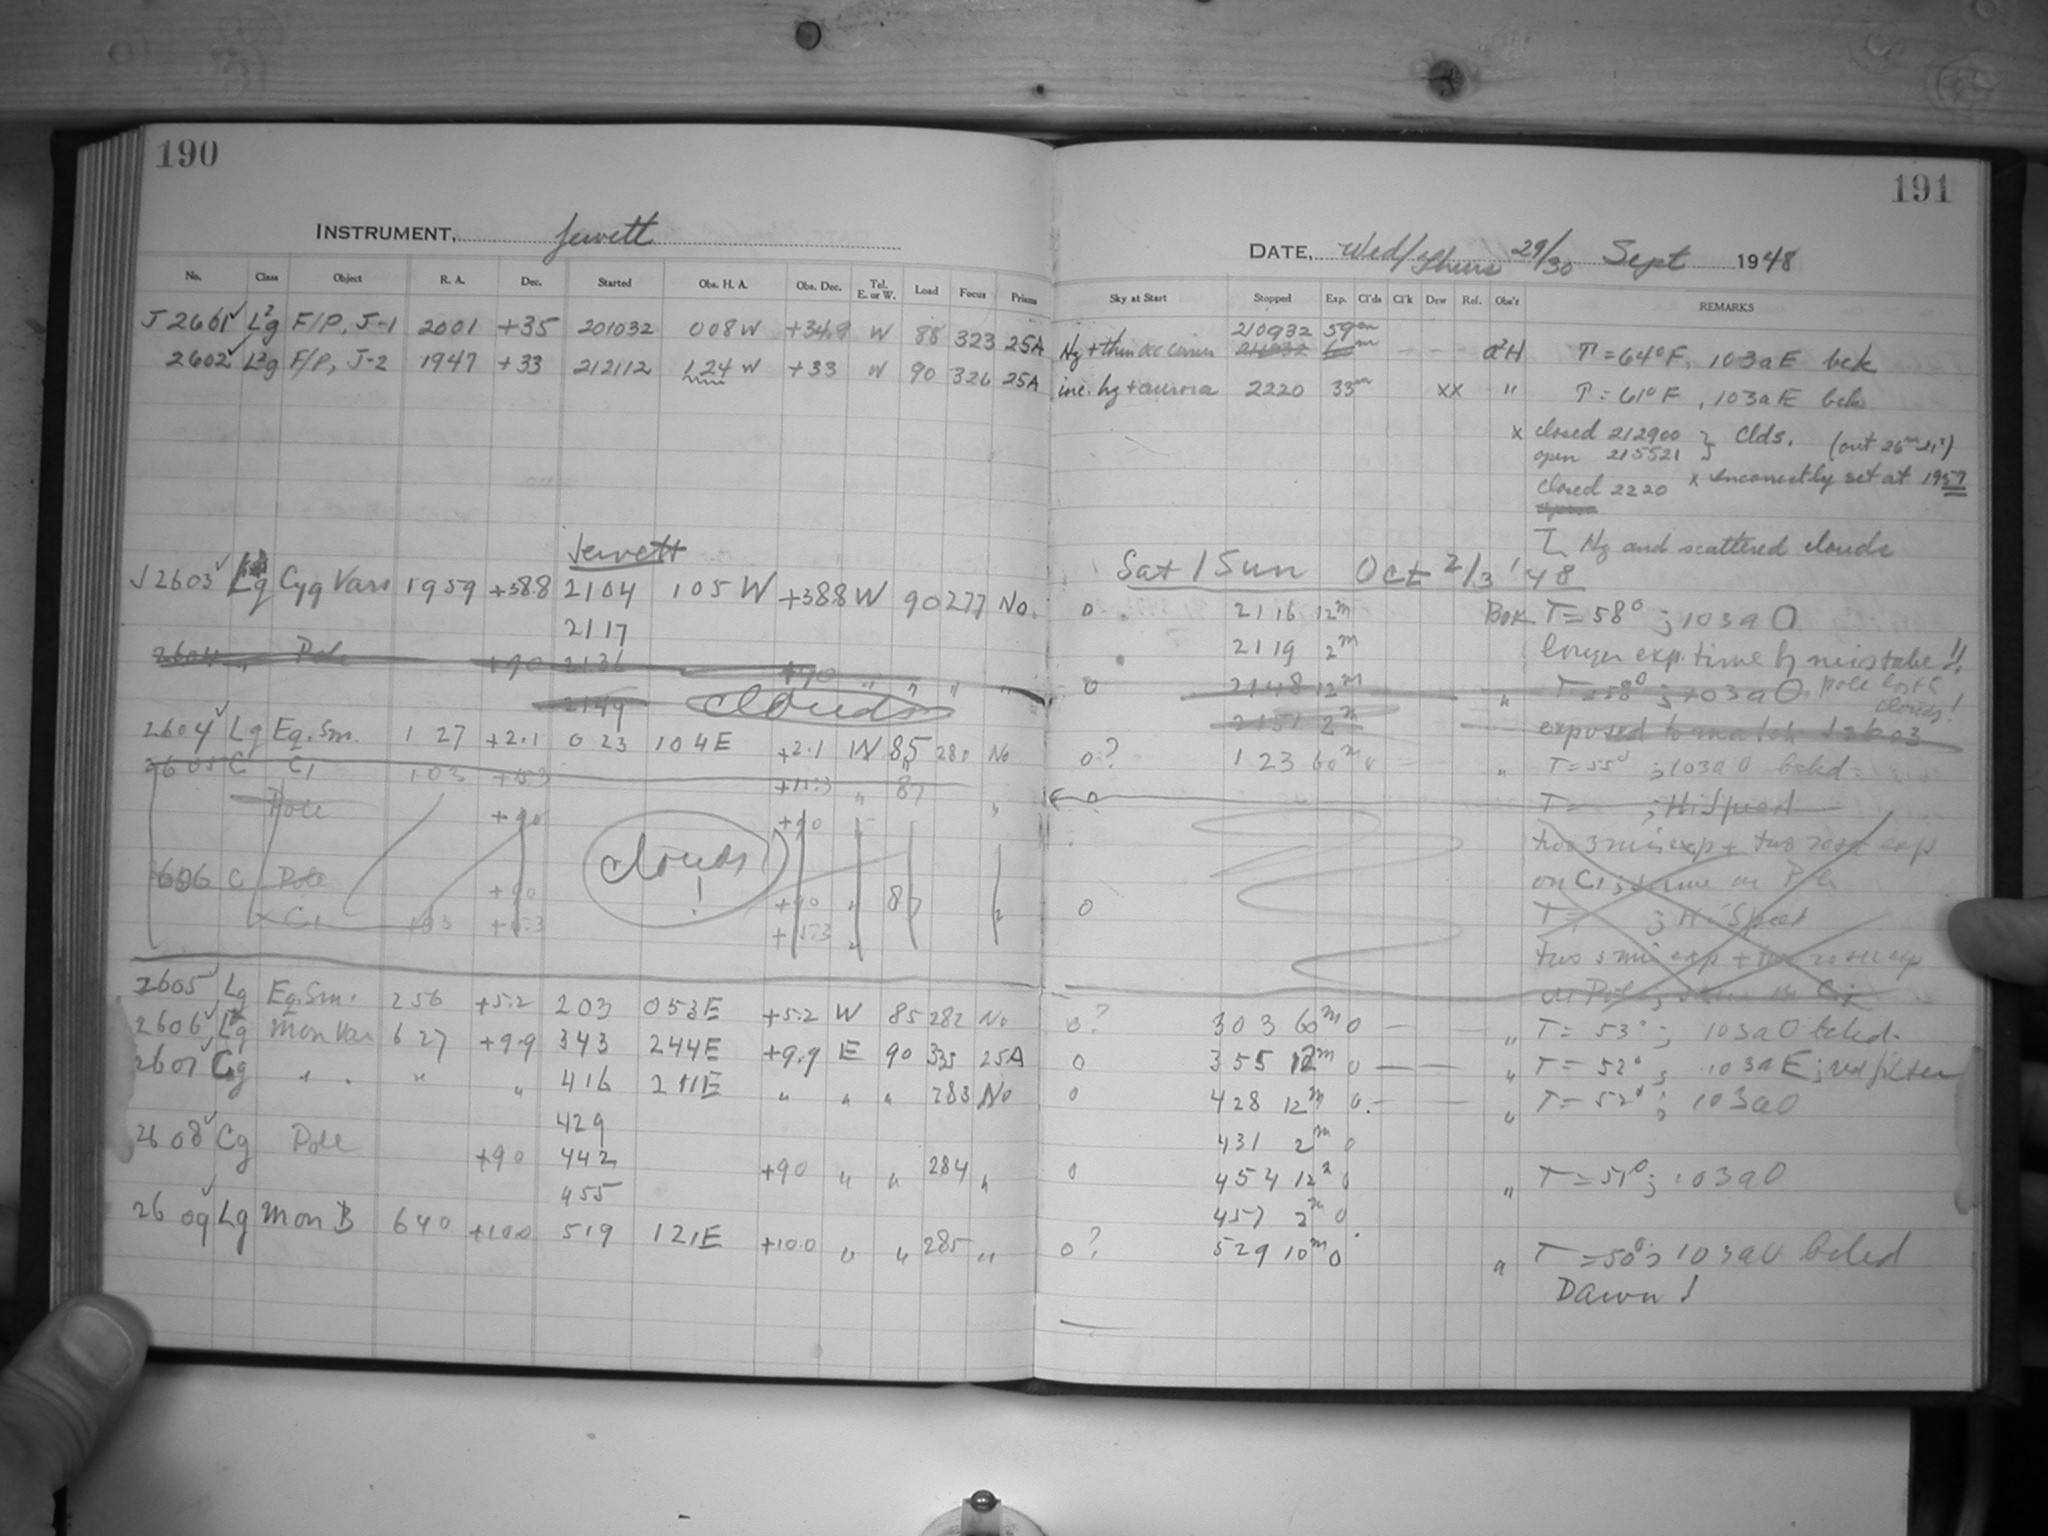 190
191
INSTRUMENT, Jewett
DATE, Wed/Thurs 29/30 Sept 1948
No. Class Object R. A. Dec. Started Obs. H. A. Obs. Dec. Tel. E. or W. Load Focus Prism
Sky at Start Stopped Exp. Cl'ds Cl'k Dew Ref. Obs'r REMARKS
J 2601 F/P, J-1 2001 +35 201032 008 W +34.9 W 88 323 25A
Hz + thin 210932 59m
T = 64°F, 103aE bck
2602 F/P, J-2 1947 +33 212112 124 W +33 W 90 326 25A
inc. hz + aurora 2220 33m xx " T = 61°F, 103aE bck
x closed 212900 } Clds. (out 26m 21s)
open 215521
closed 2220 x incorrectly set at 1957
Hz and scattered clouds
Jewett
Sat / Sun Oct 2/3 '48
J 2603 Lg Cyg Vars 1959 +38.8 2104 105 W +38.8 W 90 277 No.
0 2116 12m Bok T = 58° ; 103aO
2117
2119 2m longer exp. time by mistake !!
2604 Pole +90 2136 +90 " " " "
0 2148 12m " T = 58° ; 103aO. Pole lost clouds!
2149 clouds
2151 2m exposed to match J2603
2604 Lg Eq. Sm. 1 27 +2.1 0 23 104 E +2.1 W 85 280 No
0? 1 23 60m 0 " T = 55° ; 103aO bckd.
2605 C C1 103 +15.3 +15.3 " 87 "
0 T = ; HiSpeed
Pole +90 +90
two 3 min exp + two 20 sec exp
on C1 ; same on Pole
2606 C Pole +90 clouds ! +90 " 87
0 T = ; HiSpeed
C1 103 +15.3 +15.3
two 3 min exp + two 20 sec exp
on Pole ; same on C1
2605 Lg Eq. Sm. 256 +5.2 203 053E +5.2 W 85 282 No
0? 303 60m 0 — — " T = 53° ; 103aO bckd.
2606 Lg Mon Var 627 +9.9 343 244E +9.9 E 90 335 25A
0 355 12m 0 — — " T = 52° ; 103aE ; red filter
2607 Cg " " " " 416 211E " " " 283 No
0 428 12m 0 — — " T = 52° ; 103aO
429
431 2m 0
2608 Cg Pole +90 442 +90 " " 284 "
0 454 12m 0 " T = 51° ; 103aO
455
457 2m 0
2609 Lg Mon B 640 +10.0 519 121E +10.0 " " 285 "
0? 529 10m 0 " T = 50° ; 103aO bckd
Dawn !